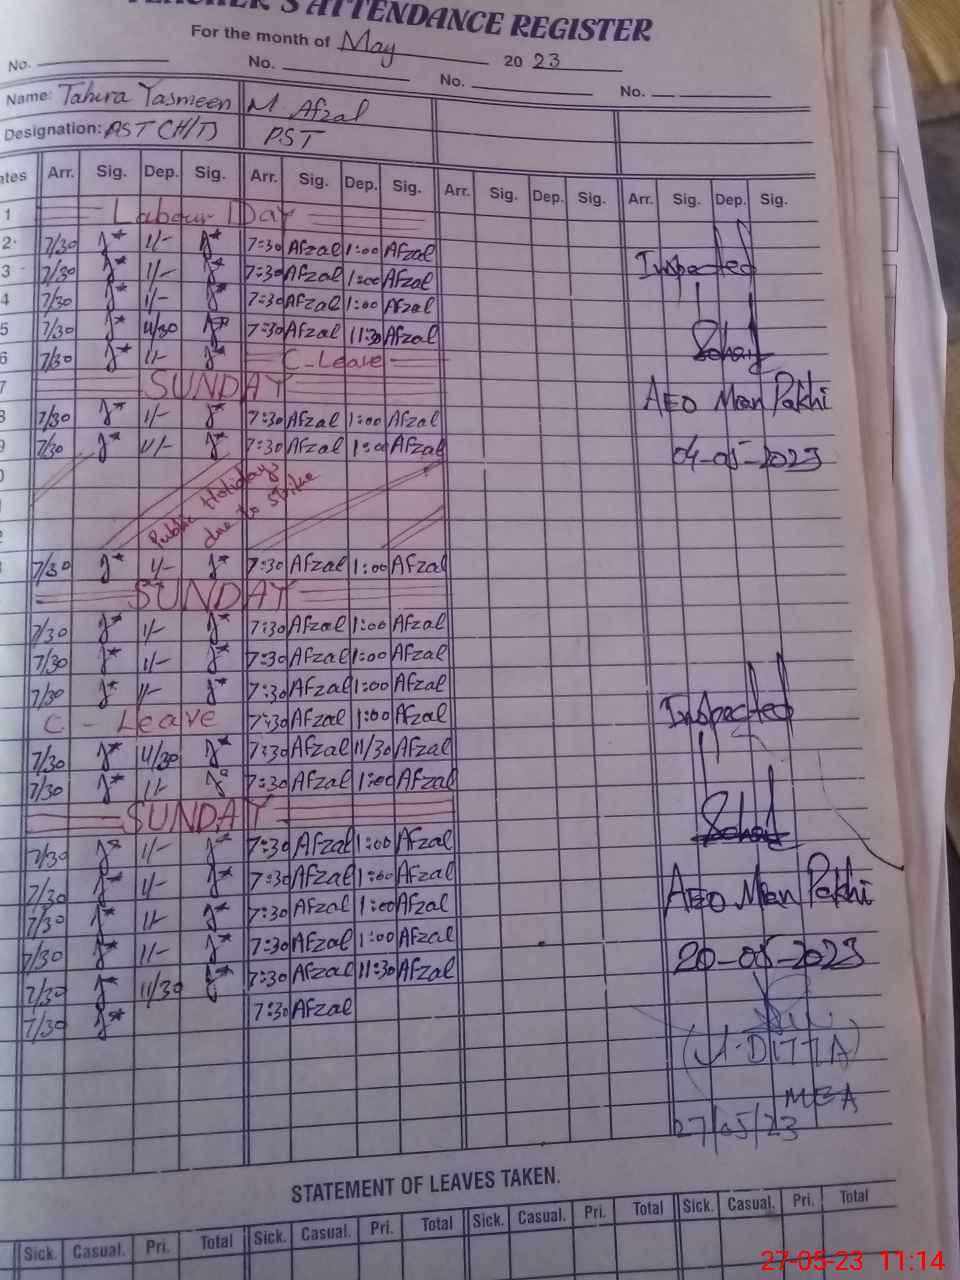 TEACHER'S ATTENDANCE REGISTER
For the month of May 20 23
No. No. No. No.
Name: Tahira Yasmeen M. Afzal
Designation: PST (H/T) PST
Arr. Sig. Dep. Sig. Arr. Sig. Dep. Sig. Arr. Sig. Dep. Sig. Arr. Sig. Dep. Sig.
1 Labour Day
2 7/30 1/- 7:30 Afzal 1:00 Afzal
Inspected
3 7/30 1/- 7:30 Afzal 1:00 Afzal
4 7/30 1/- 7:30 Afzal 1:00 Afzal
5 7/30 11/30 7:30 Afzal 11:30 Afzal
6 7/30 1/- C-Leave
7 SUNDAY
AEO Mian Pakhi
8 7/30 1/- 7:30 Afzal 1:00 Afzal
9 7/30 1/- 7:30 Afzal 1:00 Afzal
04-05-2023
Public Holidays
due to Strike
7/30 1/- 7:30 Afzal 1:00 Afzal
SUNDAY
7/30 1/- 7:30 Afzal 1:00 Afzal
7/30 1/- 7:30 Afzal 1:00 Afzal
7/30 1/- 7:30 Afzal 1:00 Afzal
C - Leave 7:30 Afzal 1:00 Afzal
Inspected
7/30 11/30 7:30 Afzal 11/30 Afzal
7/30 1/- 7:30 Afzal 1:00 Afzal
SUNDAY
7/30 1/- 7:30 Afzal 1:00 Afzal
7/30 1/- 7:30 Afzal 1:00 Afzal
AEO Mian Pakhi
7/30 1/- 7:30 Afzal 1:00 Afzal
7/30 1/- 7:30 Afzal 1:00 Afzal
20-05-2023
7/30 11/30 7:30 Afzal 11:30 Afzal
7/30 7:30 Afzal
MEA
27/05/23
STATEMENT OF LEAVES TAKEN.
Sick. Casual. Pri. Total Sick. Casual. Pri. Total Sick. Casual. Pri. Total Sick. Casual. Pri. Total
27-05-23 11:14